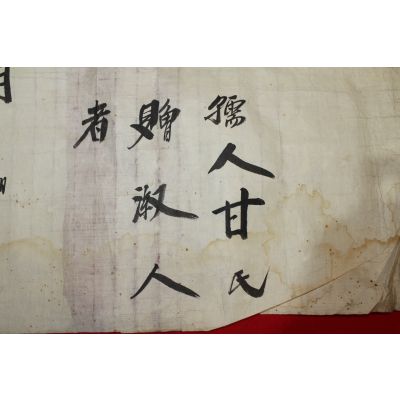 孺人甘氏
贈淑人
者